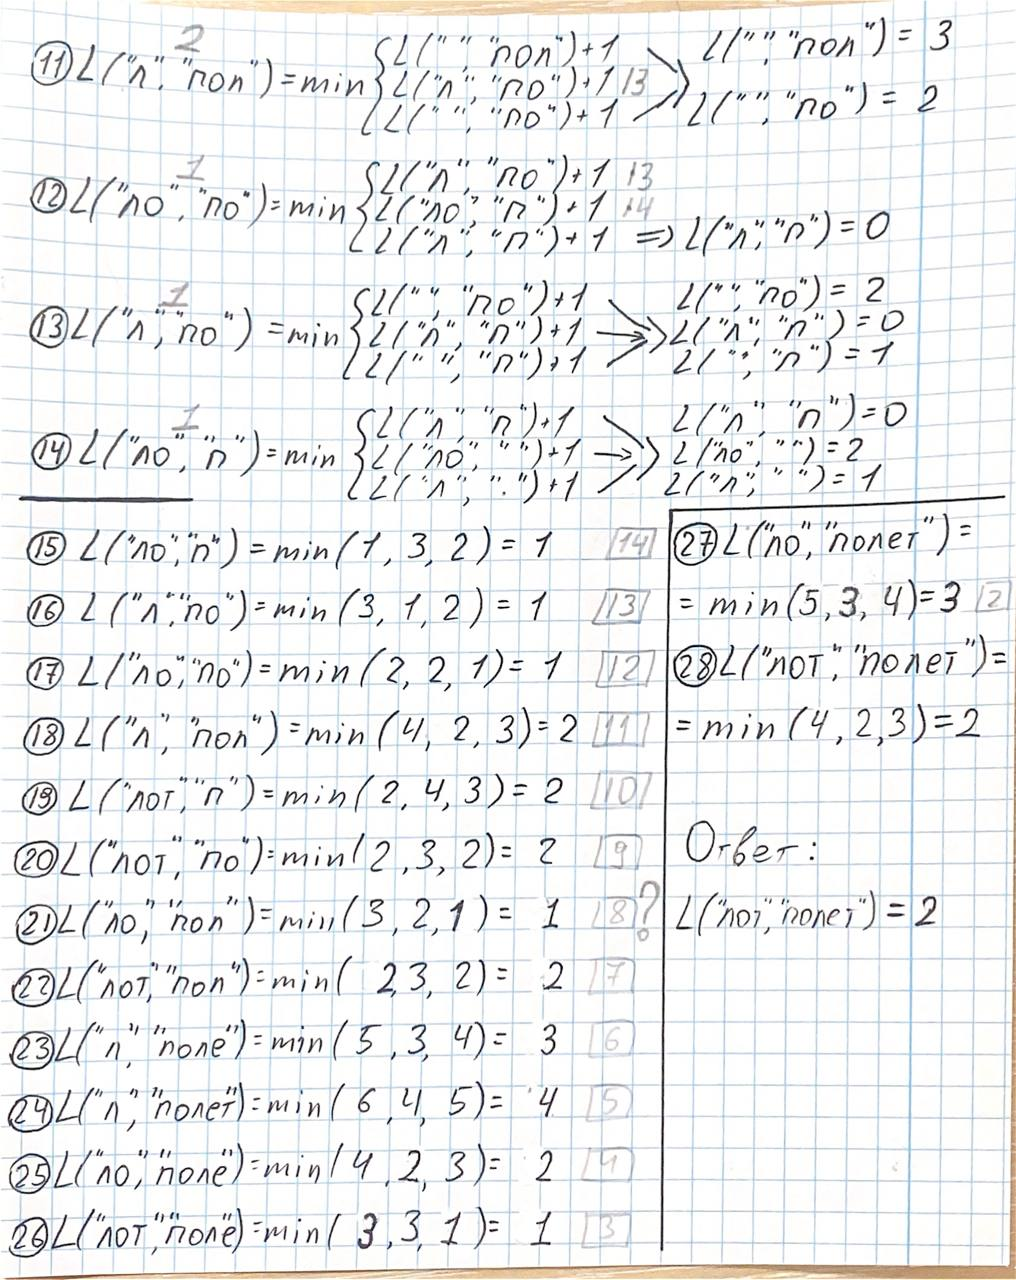 2
⑪ L("л", "пол") = min { L(" ", "пол")+1
L("л", "по")+1 13
L(" ", "по")+1
L(" ", "пол") = 3
L(" ", "по") = 2
1
⑫ L("ло", "по") = min { L("л", "по")+1 13
L("ло", "п")+1 14
L("л", "п")+1 => L("л", "п") = 0
1
⑬ L("л", "по") = min { L(" ", "по")+1
L("л", "п")+1
L(" ", "п")+1
L(" ", "по") = 2
L("л", "п") = 0
L(" ", "п") = 1
1
⑭ L("ло", "п") = min { L("л", "п")+1
L("ло", " ")+1
L("л", " ")+1
L("л", "п") = 0
L("ло", " ") = 2
L("л", " ") = 1
⑮ L("ло", "п") = min(1, 3, 2) = 1 14
⑯ L("л", "по") = min(3, 1, 2) = 1 13
⑰ L("ло", "по") = min(2, 2, 1) = 1 12
⑱ L("л", "пол") = min(4, 2, 3) = 2 11
⑲ L("лот", "п") = min(2, 4, 3) = 2 10
⑳ L("лот", "по") = min(2, 3, 2) = 2 9
㉑ L("ло", "пол") = min(3, 2, 1) = 1 8 ?
㉒ L("лот", "пол") = min(2, 3, 2) = 2 7
㉓ L("л", "поле") = min(5, 3, 4) = 3 6
㉔ L("л", "полет") = min(6, 4, 5) = 4 5
㉕ L("ло", "поле") = min(4, 2, 3) = 2 4
㉖ L("лот", "поле") = min(3, 3, 1) = 1 3
㉗ L("ло", "полет") =
= min(5, 3, 4) = 3 2
㉘ L("лот", "полет") =
= min(4, 2, 3) = 2
Ответ:
L("лот", "полет") = 2